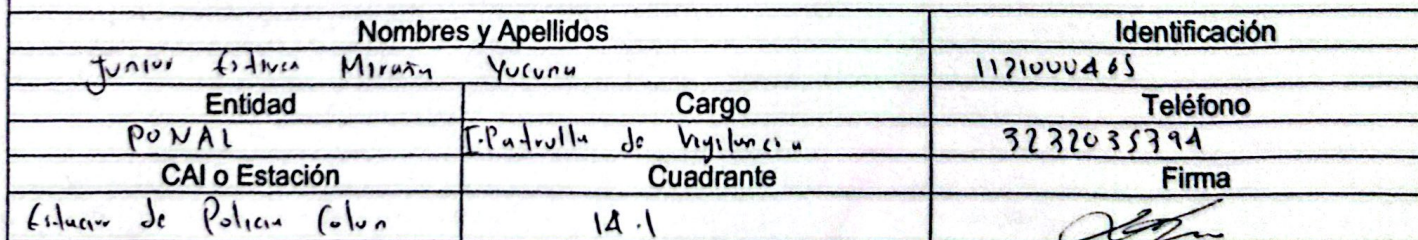 Nombres y Apellidos Identificación
Junior Estiven Miraña Yucuna 1121000465
Entidad Cargo Teléfono
PONAL I.Patrulla de Vigilancia 3232035794
CAI o Estación Cuadrante Firma
Estacion de Policia Colon 14.1